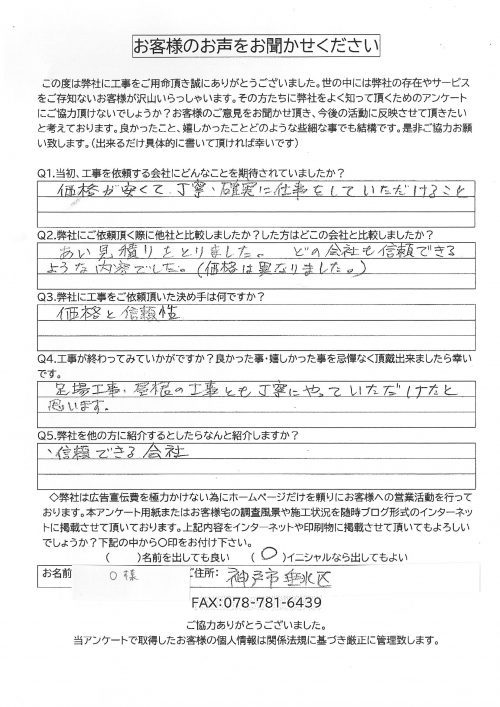 お客様のお声をお聞かせください
この度は弊社に工事をご用命頂き誠にありがとうございました。世の中には弊社の存在やサービス
をご存知ないお客様が沢山いらっしゃいます。その方たちに弊社をよく知って頂くためのアンケート
にご協力頂けないでしょうか？お客様のご意見をお聞かせ頂き、今後の活動に反映させて頂きたい
と考えております。良かったこと、嬉しかったことどのような些細な事でも結構です。是非ご協力お願
い致します。（出来るだけ具体的に書いて頂ければ幸いです）
Q1.当初、工事を依頼する会社にどんなことを期待されていましたか？
価格が安くて、丁寧・確実に仕事をしていただけること
Q2.弊社にご依頼頂く際に他社と比較しましたか？した方はどこの会社と比較しましたか？
あい見積りをとりました。 どの会社も信頼できる
ような内容でした。（価格は異なりました。）
Q3.弊社に工事をご依頼頂いた決め手は何ですか？
価格と信頼性
Q4.工事が終わってみていかがですか？良かった事・嬉しかった事を忌憚なく頂戴出来ましたら幸い
です。
足場工事・屋根の工事とも丁寧にやっていただけたと
思います。
Q5.弊社を他の方に紹介するとしたらなんと紹介しますか？
信頼できる会社
◇弊社は広告宣伝費を極力かけない為にホームページだけを頼りにお客様への営業活動を行って
おります。本アンケート用紙またはお客様宅の調査風景や施工状況を随時ブログ形式のインターネッ
トに掲載させて頂いております。上記内容をインターネットや印刷物に掲載させて頂いてもよろしい
でしょうか？下記の中から〇印をお付け下さい。
（ ）名前を出しても良い （〇）イニシャルなら出してもよい
お名前 O様 ご住所： 神戸市垂水区
FAX:078-781-6439
ご協力ありがとうございました。
当アンケートで取得したお客様の個人情報は関係法規に基づき厳正に管理致します。